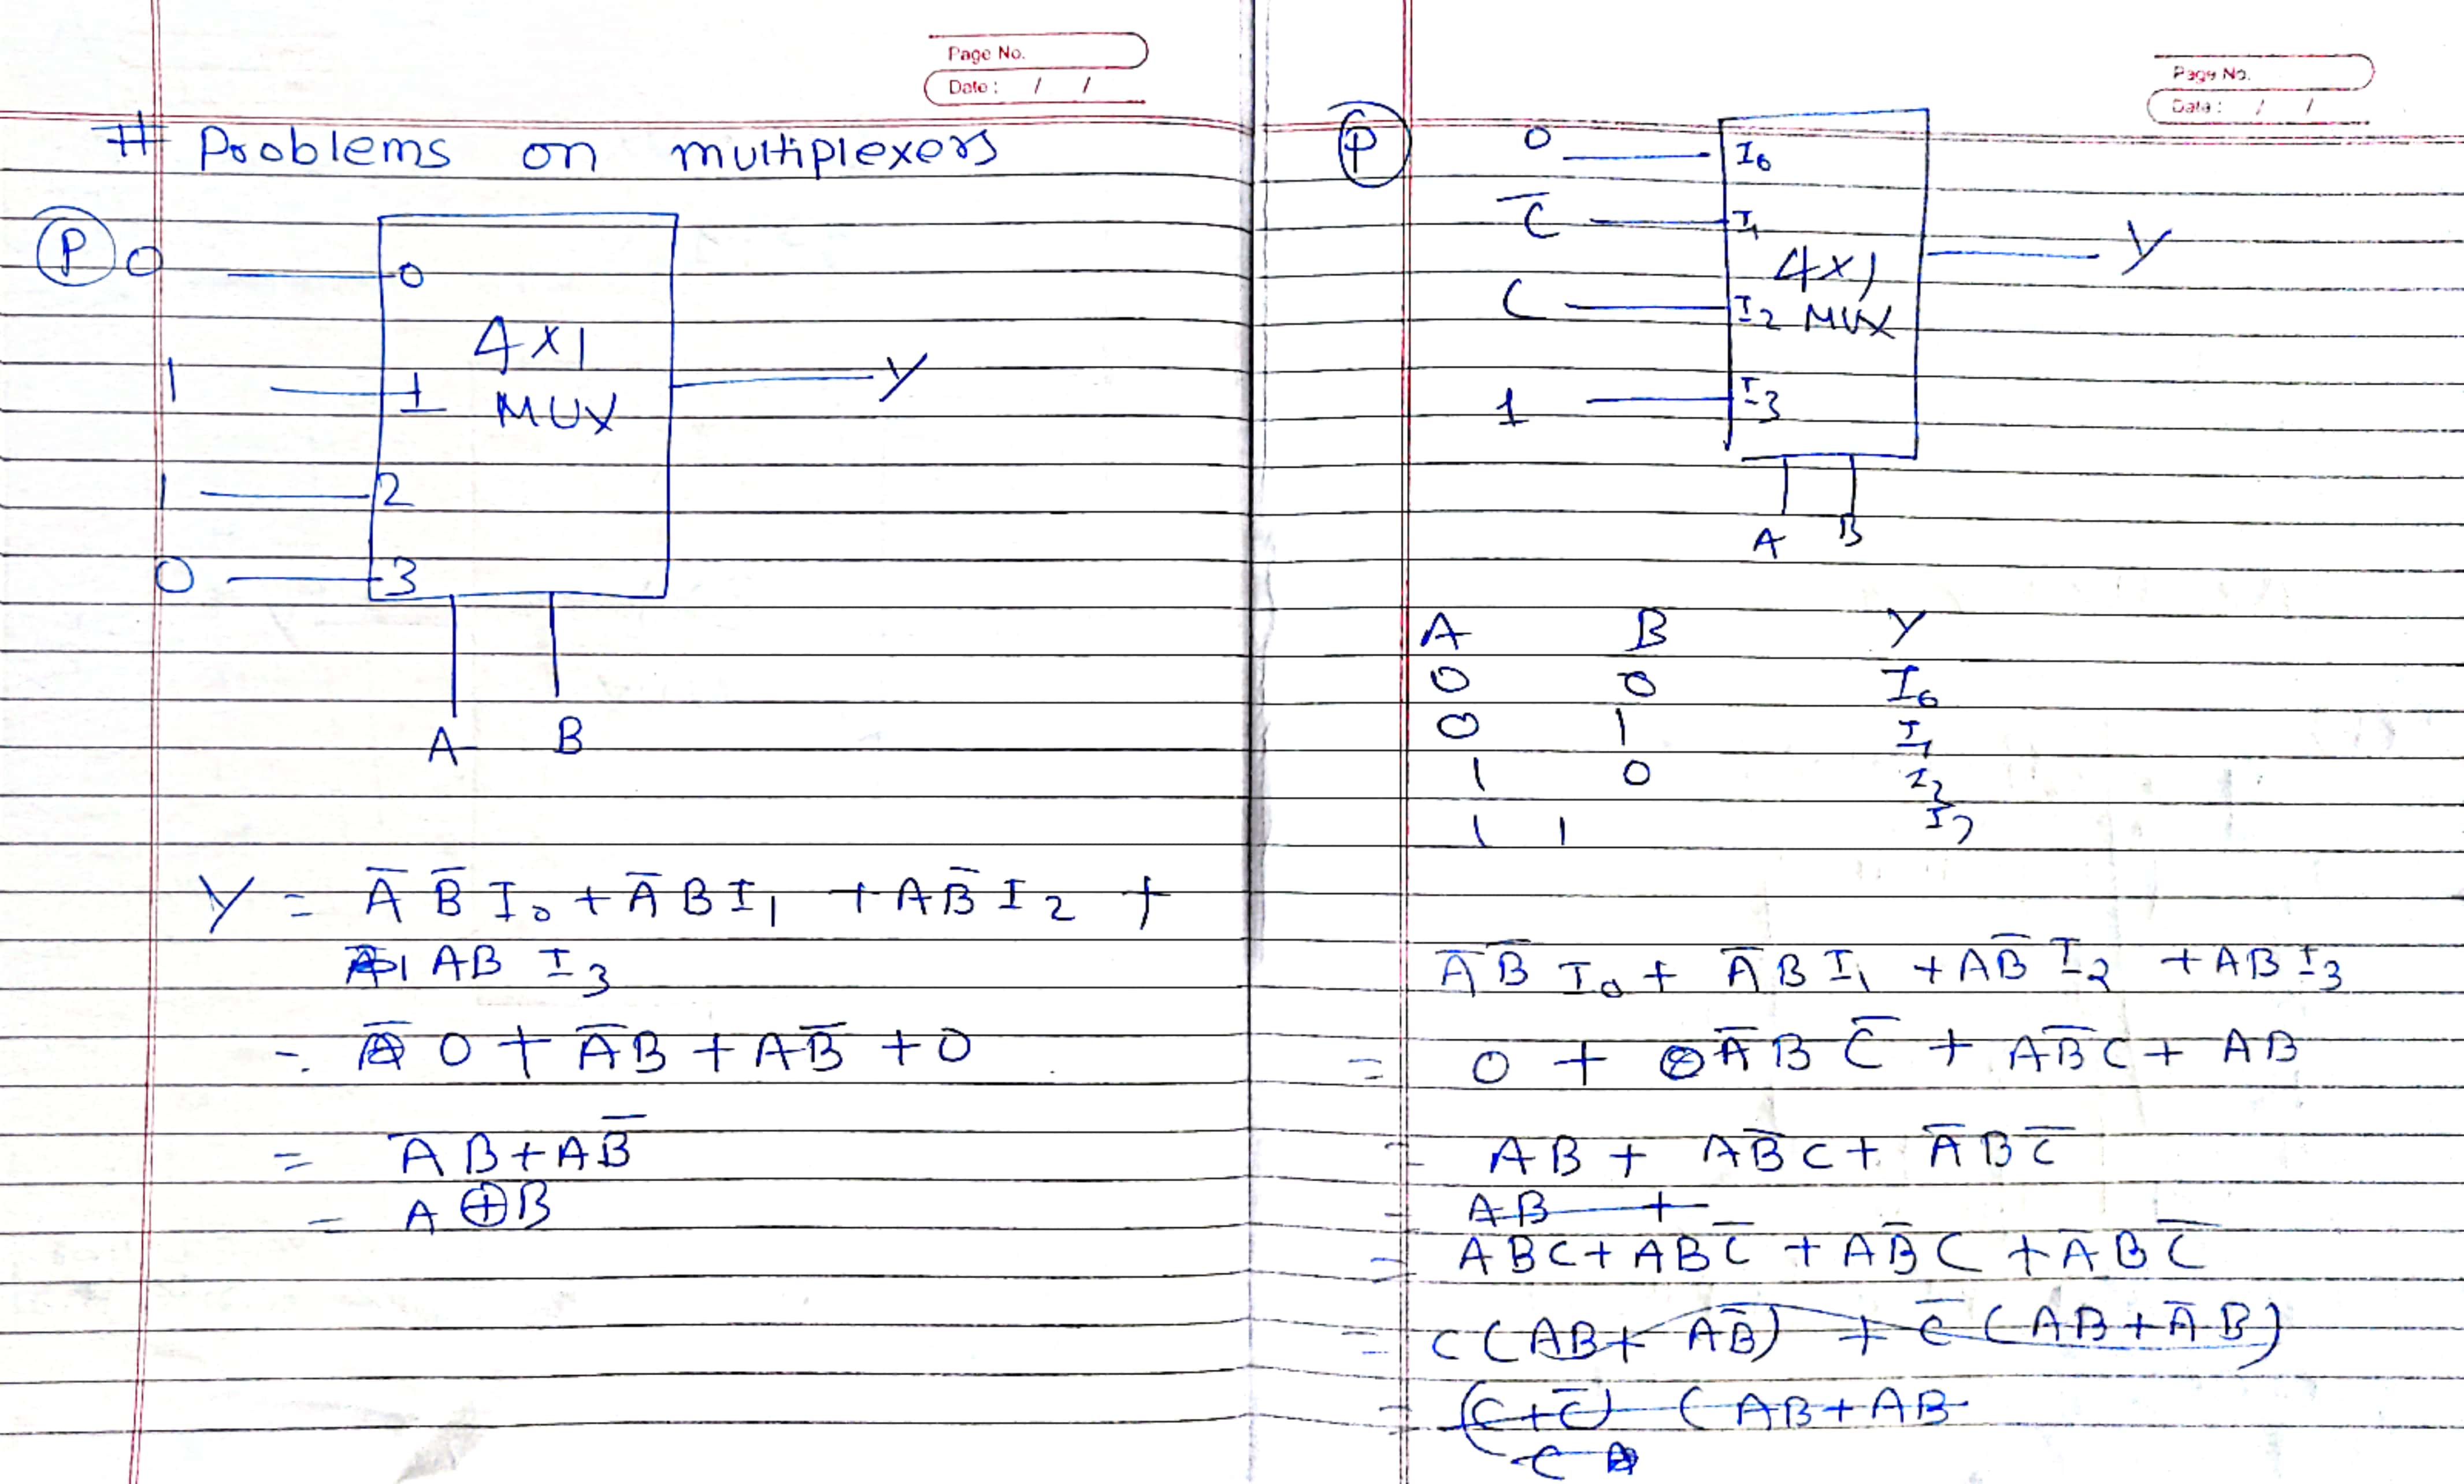 Page No.
Date : / /
# Problems on multiplexers
P
0 0
1 1
4x1
MUX
Y
1 2
0 3
A B
Y = A̅ B̅ I₀ + A̅ B I₁ + A B̅ I₂ +
AB I₃
= 0 + A̅B + AB̅ + 0
= A̅B + AB̅
= A ⊕ B
Page No.
Date : / /
P
0 I₀
C̅ I₁
4x1
Y
C I₂ MUX
1 I₃
A B
A B Y
0 0 I₀
0 1 I₁
1 0 I₂
1 1 I₃
A̅ B̅ I₀ + A̅ B I₁ + A B̅ I₂ + A B I₃
= 0 + A̅ B C̅ + A B̅ C + AB
= AB + A B̅ C + A̅ B C̅
= AB +
= ABC + ABC̅ + AB̅C + A̅BC̅
= C(AB + AB̅) + C̅(AB + A̅B)
= (C + C̅) (AB + AB
C